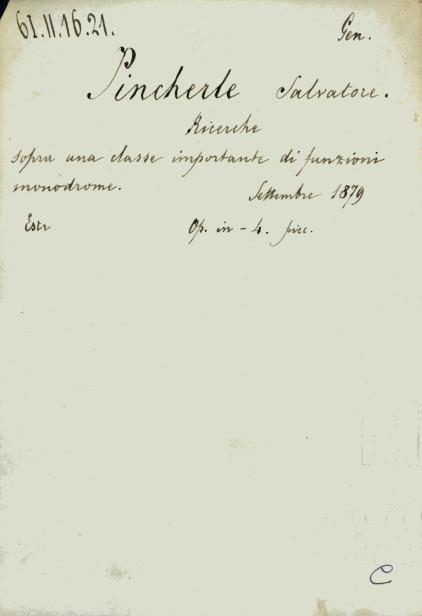 61.II.16.21. Gen.
Pincherle Salvatore.
Ricerche
sopra una classe importante di funzioni
monodrome. Settembre 1879
Estr Op. in - 4. picc.
C